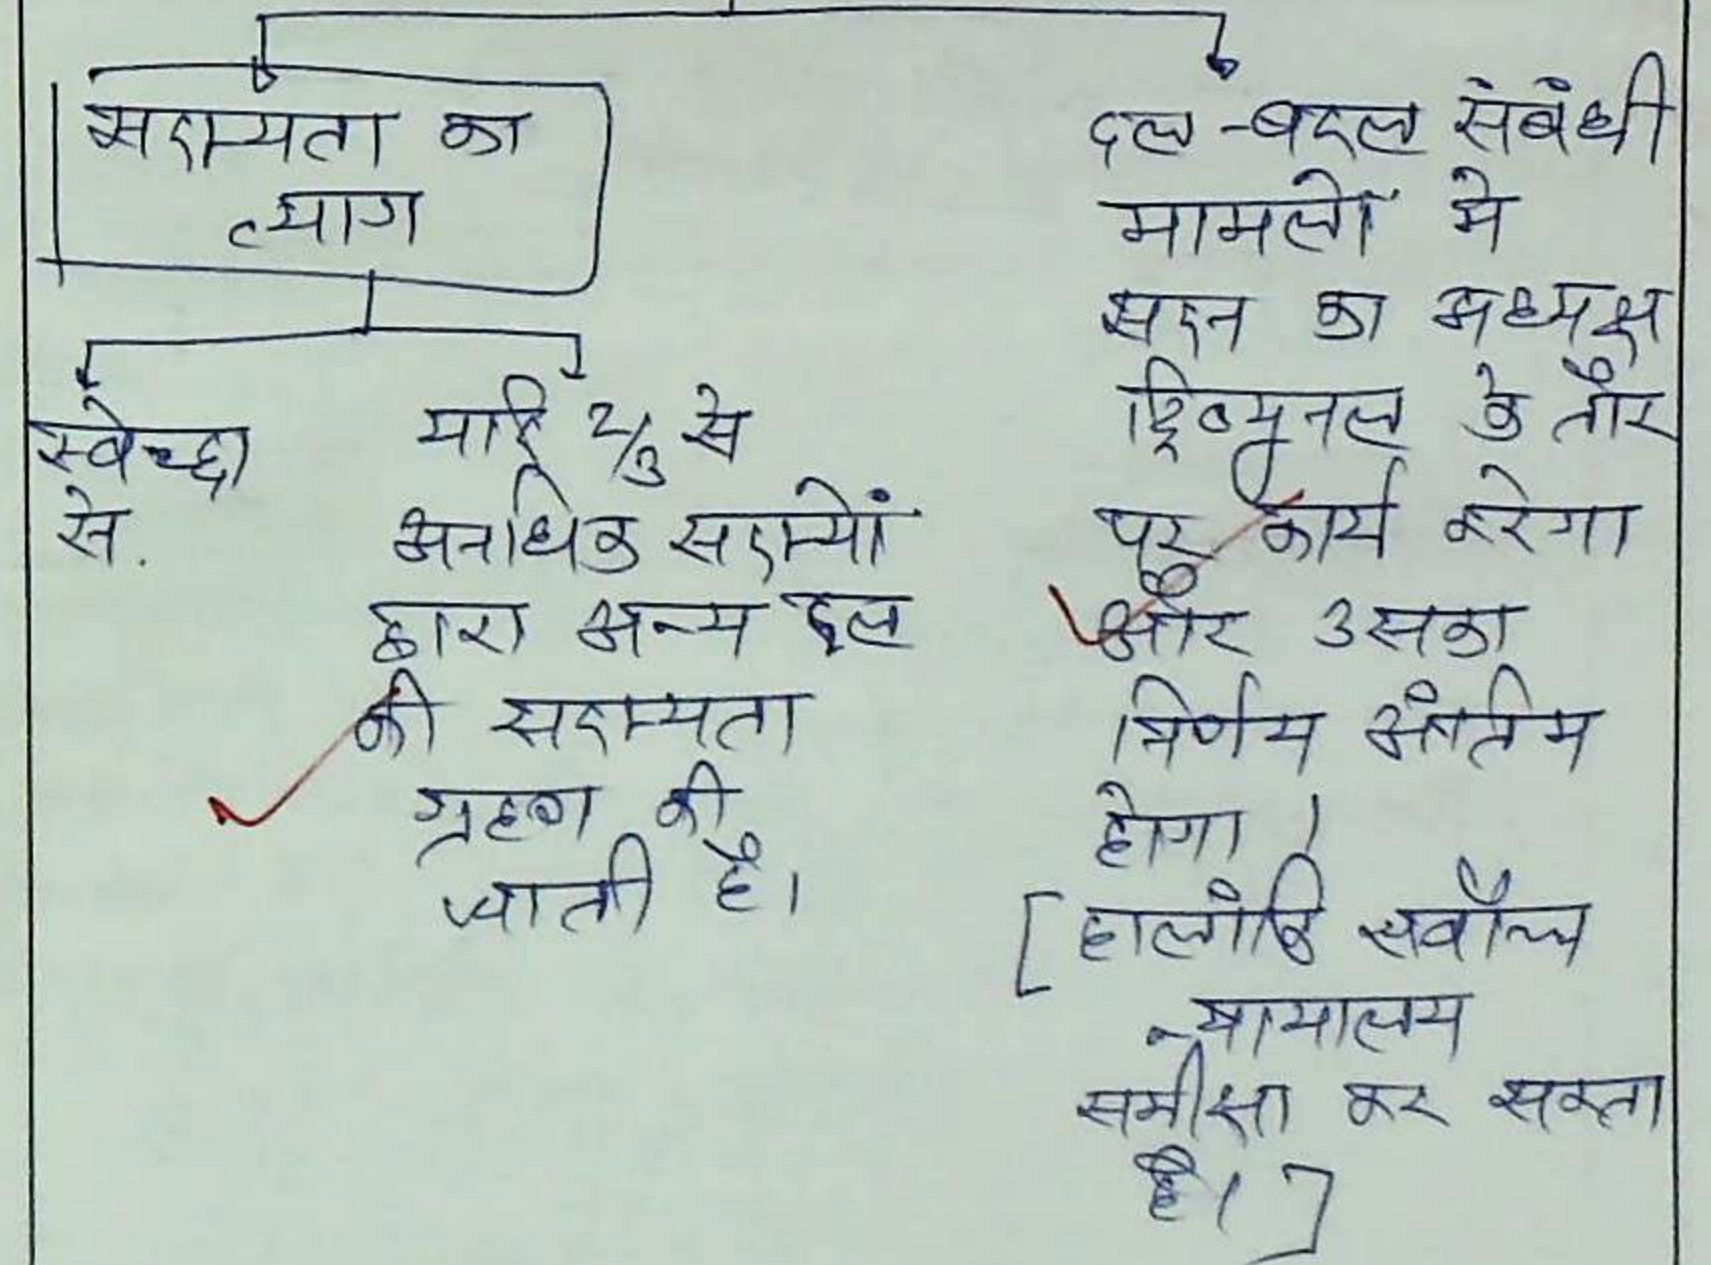 सदस्यता का
त्याग
स्वेच्छा
से.
यदि 2/3 से
अनधिक सदस्यों
द्वारा अन्य दल
की सदस्यता
ग्रहण की
जाती है।
दल-बदल संबंधी
मामलों मे
सदन का अध्यक्ष
ट्रिब्यूनल के तौर
पर कार्य करेगा
और उसका
निर्णय अंतिम
होगा।
[हालांकि सर्वोच्च
न्यायालय
समीक्षा कर सकता
है।]